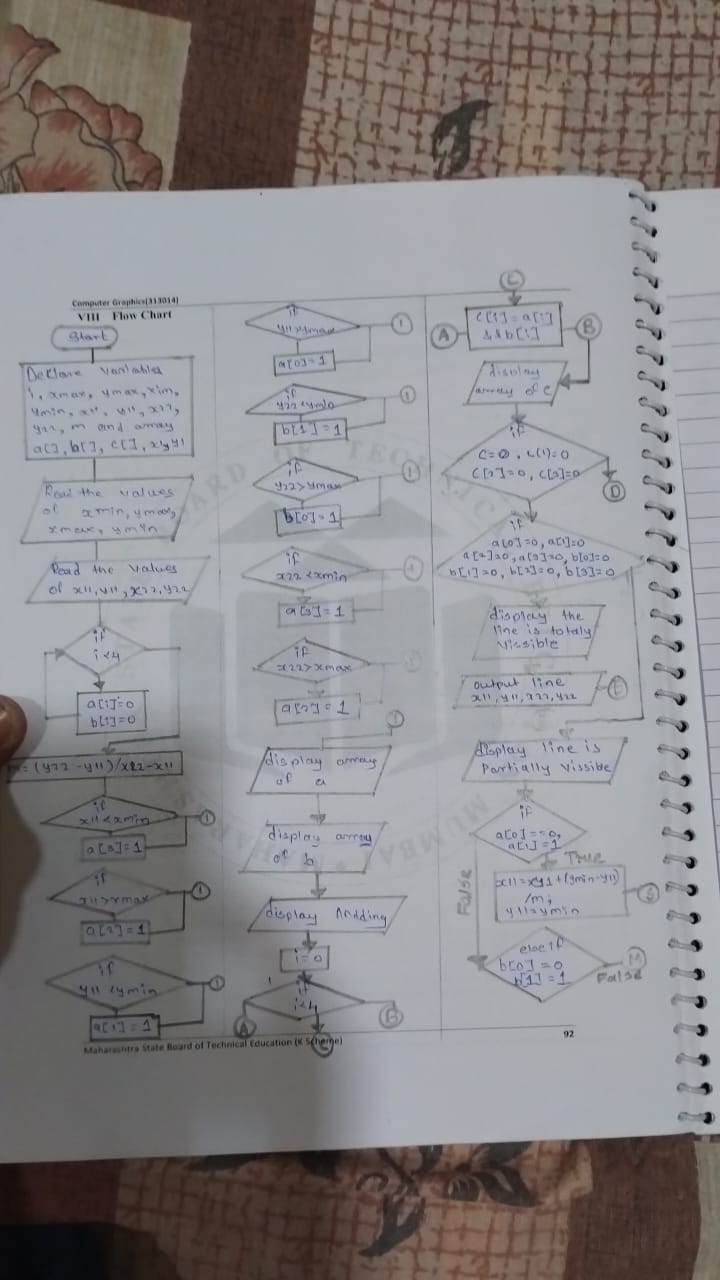 Computer Graphics(313014)
VIII Flow Chart
Start
Declare variables
i, xmax, ymax, xim,
ymin, x11, y11, x22,
y22, m and array
a[], b[], c[], x1y1
Read the values
of xmin, ymax,
xmax, ymin
Read the values
of x11, y11, x22, y22
if
i<4
a[i]=0
b[i]=0
m=(y22-y11)/x22-x11
if
x11<xmin
1
a[3]=1
if
x11>xmax
1
a[2]=1
if
y11<ymin
1
a[1]=1
if
y11>ymax
1
a[0]=1
if
y22<ymin
1
b[1]=1
if
y22>ymax
1
b[0]=1
if
x22<xmin
1
a[3]=1
if
x22>xmax
1
a[2]=1
1
display array
of a
display array
of b
display Andding
i=0
if
i<4
A
B
C
C
c[i]=a[i]
&&b[i]
A
B
display
array of c
if
C=0, c(1)=0
C[2]=0, c[3]=0
D
if
a[0]=0, a[1]=0
a[2]=0, a[3]=0, b[0]=0
b[1]=0, b[2]=0, b[3]=0
display the
line is totaly
vissible
output line
x11, y11, x22, y22
E
display line is
Partially vissible
if
a[0]==0,
a[1]=1
True
False
/m;
y11=ymin
else if
b[0]=0
b[1]=1
False
92
Maharashtra State Board of Technical Education (K Scheme)